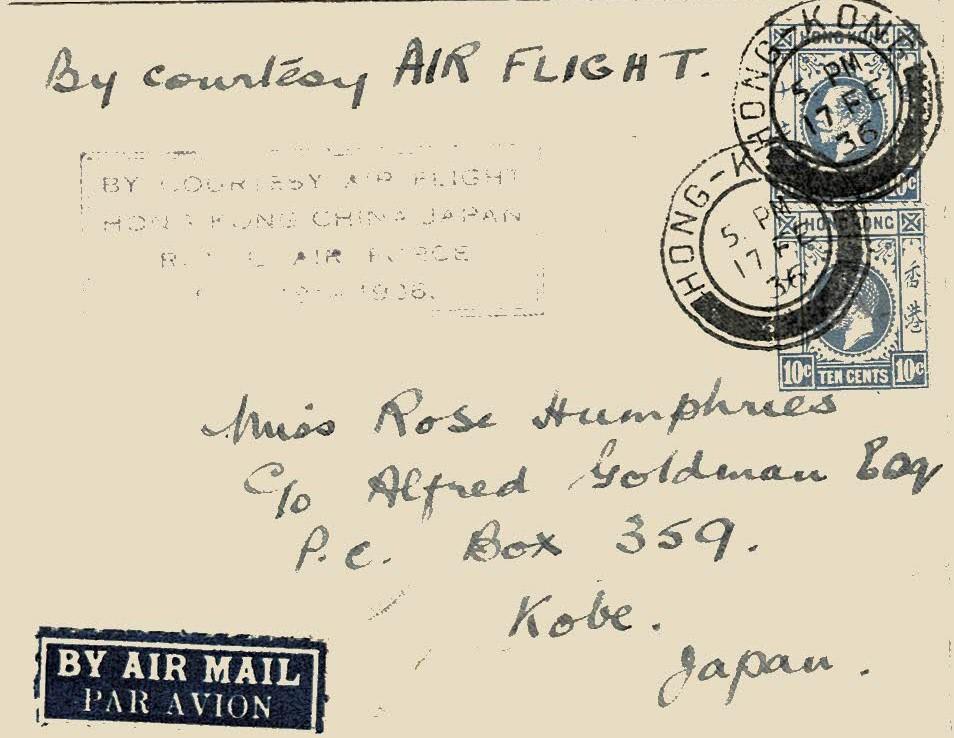 By courtesy AIR FLIGHT.
HONG-KONG
5. PM
17 FE
36
HONG KONG
10c
HONG-K
5. PM
17 FE
36
HONG KONG
香港
10c TEN CENTS 10c
BY COURTESY AIR FLIGHT
HONG KONG CHINA JAPAN
AIR FORCE
1936.
Miss Rose Humphries
C/o Alfred Goldman Esq
P.C. Box 359.
Kobe.
Japan.
BY AIR MAIL
PAR AVION